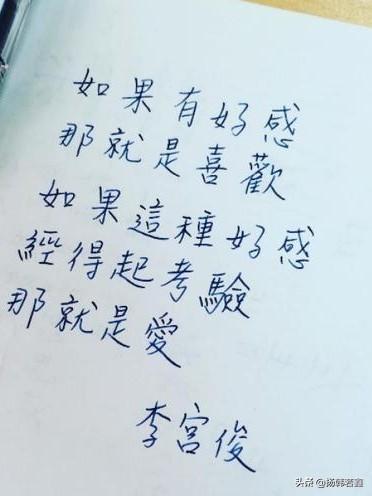 如果有好感
那就是喜歡
如果這種好感
經得起考驗
那就是愛
李宮俊
头条 @扬韩若鑫